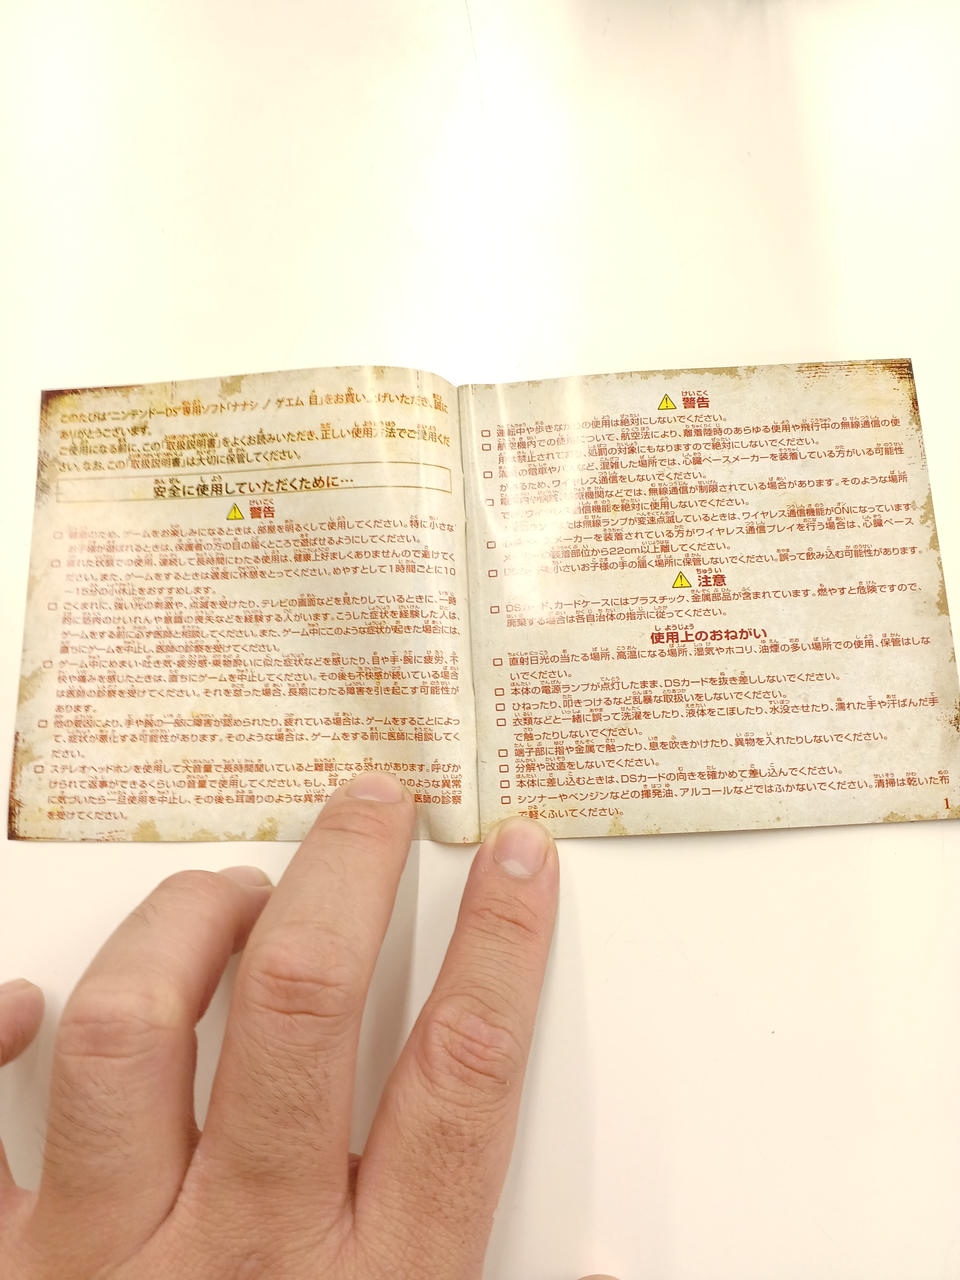 このたびは"ニンテンドーDS"専用ソフト「ナナシ ノ ゲエム 目」をお買い上げいただき、誠に
ありがとうございます。
ご使用になる前に、この「取扱説明書」をよくお読みいただき、正しい使用方法でご使用くだ
さい。なお、この「取扱説明書」は大切に保管してください。
安全に使用していただくために…
警告
健康のため、ゲームをお楽しみになるときは、部屋を明るくして使用してください。特に小さな
お子様が遊ばれるときは、保護者の方の目の届くところで遊ばせるようにしてください。
疲れた状態での使用、連続して長時間にわたる使用は、健康上好ましくありませんので避けてく
ださい。また、ゲームをするときは適度に休憩をとってください。めやすとして1時間ごとに10
〜15分の小休止をおすすめします。
ごくまれに、強い光の刺激や、点滅を受けたり、テレビの画面などを見たりしているときに、一時
的に筋肉のけいれんや意識の喪失などを経験する人がいます。こうした症状を経験した人は、
ゲームをする前に必ず医師と相談してください。また、ゲーム中にこのような症状が起きた場合には、
直ちにゲームを中止し、医師の診察を受けてください。
ゲーム中にめまい・吐き気・疲労感・乗物酔いに似た症状などを感じたり、目や手・腕に疲労、不
快や痛みを感じたときは、直ちにゲームを中止してください。その後も不快感が続いている場合
は医師の診察を受けてください。それを怠った場合、長期にわたる障害を引き起こす可能性が
あります。
他の要因により、手や腕の一部に障害が認められたり、疲れている場合は、ゲームをすることによっ
て、症状が悪化する可能性があります。そのような場合は、ゲームをする前に医師に相談してく
ださい。
ステレオヘッドホンを使用して大音量で長時間聞いていると難聴になる恐れがあります。呼びか
けられて返事ができるくらいの音量で使用してください。もし、耳の りのような異常
に気づいたら一旦使用を中止し、その後も耳鳴りのような異常が 医師の診察
を受けてください。
警告
運転中や歩きながらの使用は絶対にしないでください。
航空機内での使用について、航空法により、離着陸時のあらゆる使用や飛行中の無線通信の使
用は禁止されており、処罰の対象にもなりますので絶対にしないでください。
満員の電車やバスなど、混雑した場所では、心臓ペースメーカーを装着している方がいる可能性
があるため、ワイヤレス通信をしないでください。
や 医療機関などでは、無線通信が制限されている場合があります。そのような場所
で ワイヤレス通信機能を絶対に使用しないでください。
では無線ランプが変速点滅しているときは、ワイヤレス通信機能がONになっています。
心臓ペースメーカーを装着されている方がワイヤレス通信プレイを行う場合は、心臓ペース
メーカーの装着部位から22cm以上離してください。
DSカードは小さいお子様の手の届く場所に保管しないでください。誤って飲み込む可能性があります。
注意
DSカード、カードケースにはプラスチック、金属部品が含まれています。燃やすと危険ですので、
廃棄する場合は各自治体の指示に従ってください。
使用上のおねがい
直射日光の当たる場所、高温になる場所、湿気やホコリ、油煙の多い場所での使用、保管はしな
いでください。
本体の電源ランプが点灯したまま、DSカードを抜き差ししないでください。
ひねったり、叩きつけるなど乱暴な取扱いをしないでください。
衣類などと一緒に誤って洗濯をしたり、液体をこぼしたり、水没させたり、濡れた手や汗ばんだ手
で触ったりしないでください。
端子部に指や金属で触ったり、息を吹きかけたり、異物を入れたりしないでください。
分解や改造をしないでください。
本体に差し込むときは、DSカードの向きを確かめて差し込んでください。
シンナーやベンジンなどの揮発油、アルコールなどではふかないでください。清掃は乾いた布
で軽くふいてください。
1